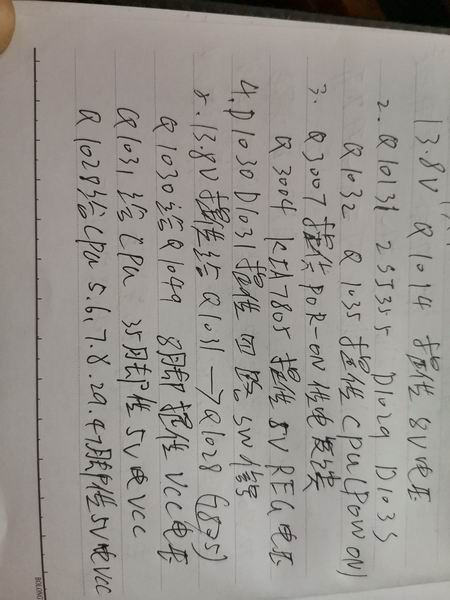 13.8V Q1014 提供 8V电压
2. Q1013 2SJ355 D1029 D1033
Q1032 Q1035 提供 CPU (POW ON)
3. Q3007 提供 POR-ON 供电
Q3004 KIA7805 提供 5V REG 电压
4. D1030 D1031 提供 四路 SW 信号
5. 13.8V 提供给 Q1031 → Q1028 (7805)
Q1030给Q1049 8脚 提供 VCC 电压
Q1031给 CPU 35脚 供 5V电 VCC
Q1028给 CPU 5.6.7.8.29.47脚 供 5V电VCC
BOLONG